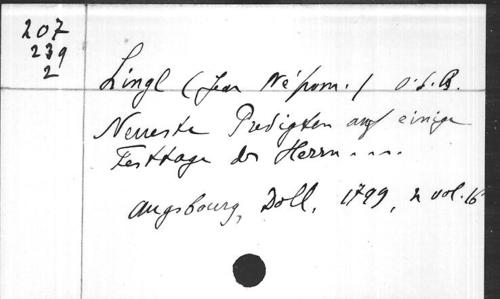 207
239
2
Lingl (Jean Népom.) O.S.B.
Neueste Predigten auf einige
Festtage des Herrn....
Augsbourg, Doll, 1799, 2 vol. 16